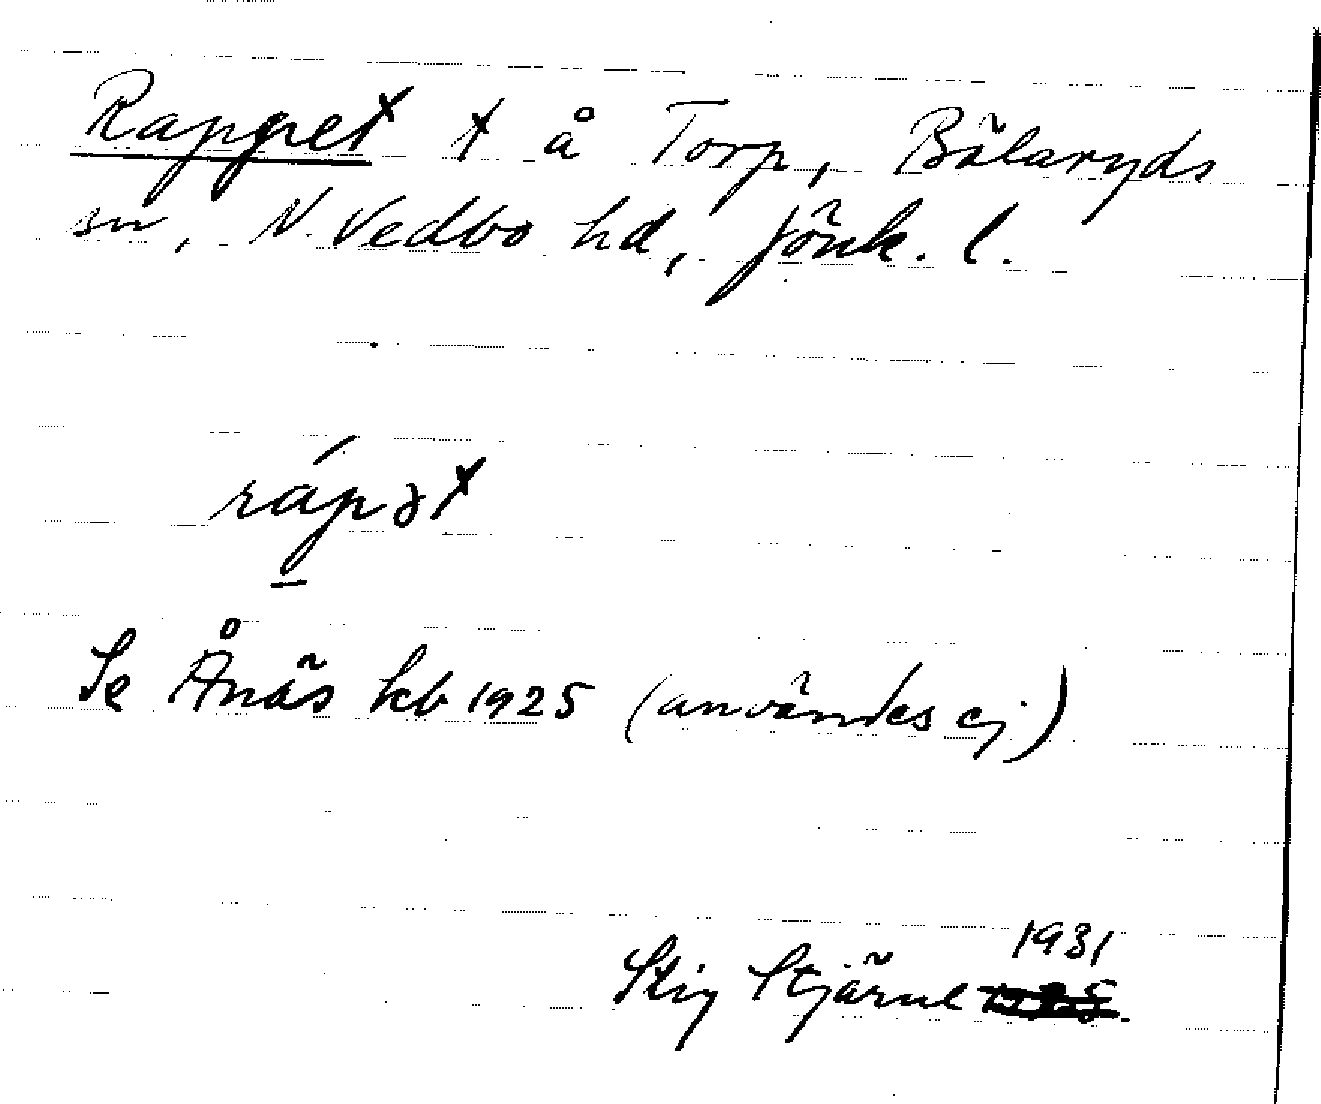 Rappet t å Torp, Bälaryds
sn, N. Vedbo hd, Jönk. l.
rápət
Se Ånäs kb 1925 (användes ej)
1931
Stig Stjärne